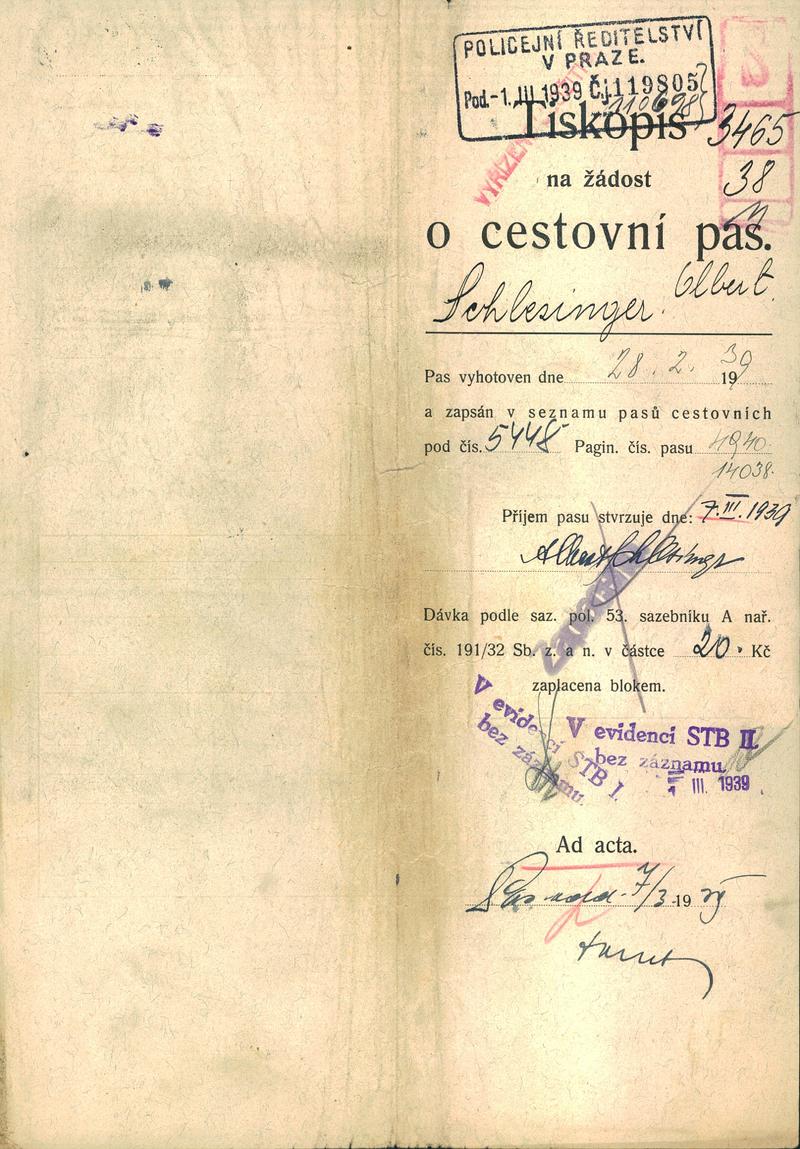 POLICEJNÍ ŘEDITELSTVÍ
V PRAZE.
Pod.-1. III 1939 Čj. 119805
110698
Tiskopis
3465
na žádost
38
o cestovní pas.
Schlesinger Albert.
Pas vyhotoven dne 28. 2. 1939
a zapsán v seznamu pasů cestovních
pod čís. 5448 Pagin. čís. pasu 4940
14038.
Příjem pasu stvrzuje dne: 7. III. 1939
Albert Schlesinger
Dávka podle saz. pol. 53. sazebníku A nař.
čís. 191/32 Sb. z. a n. v částce 20.- Kč
zaplacena blokem.
V evidenci STB I.
bez záznamu.
V evidenci STB II.
bez záznamu
1 III. 1939
Ad acta.
7/3 19 39